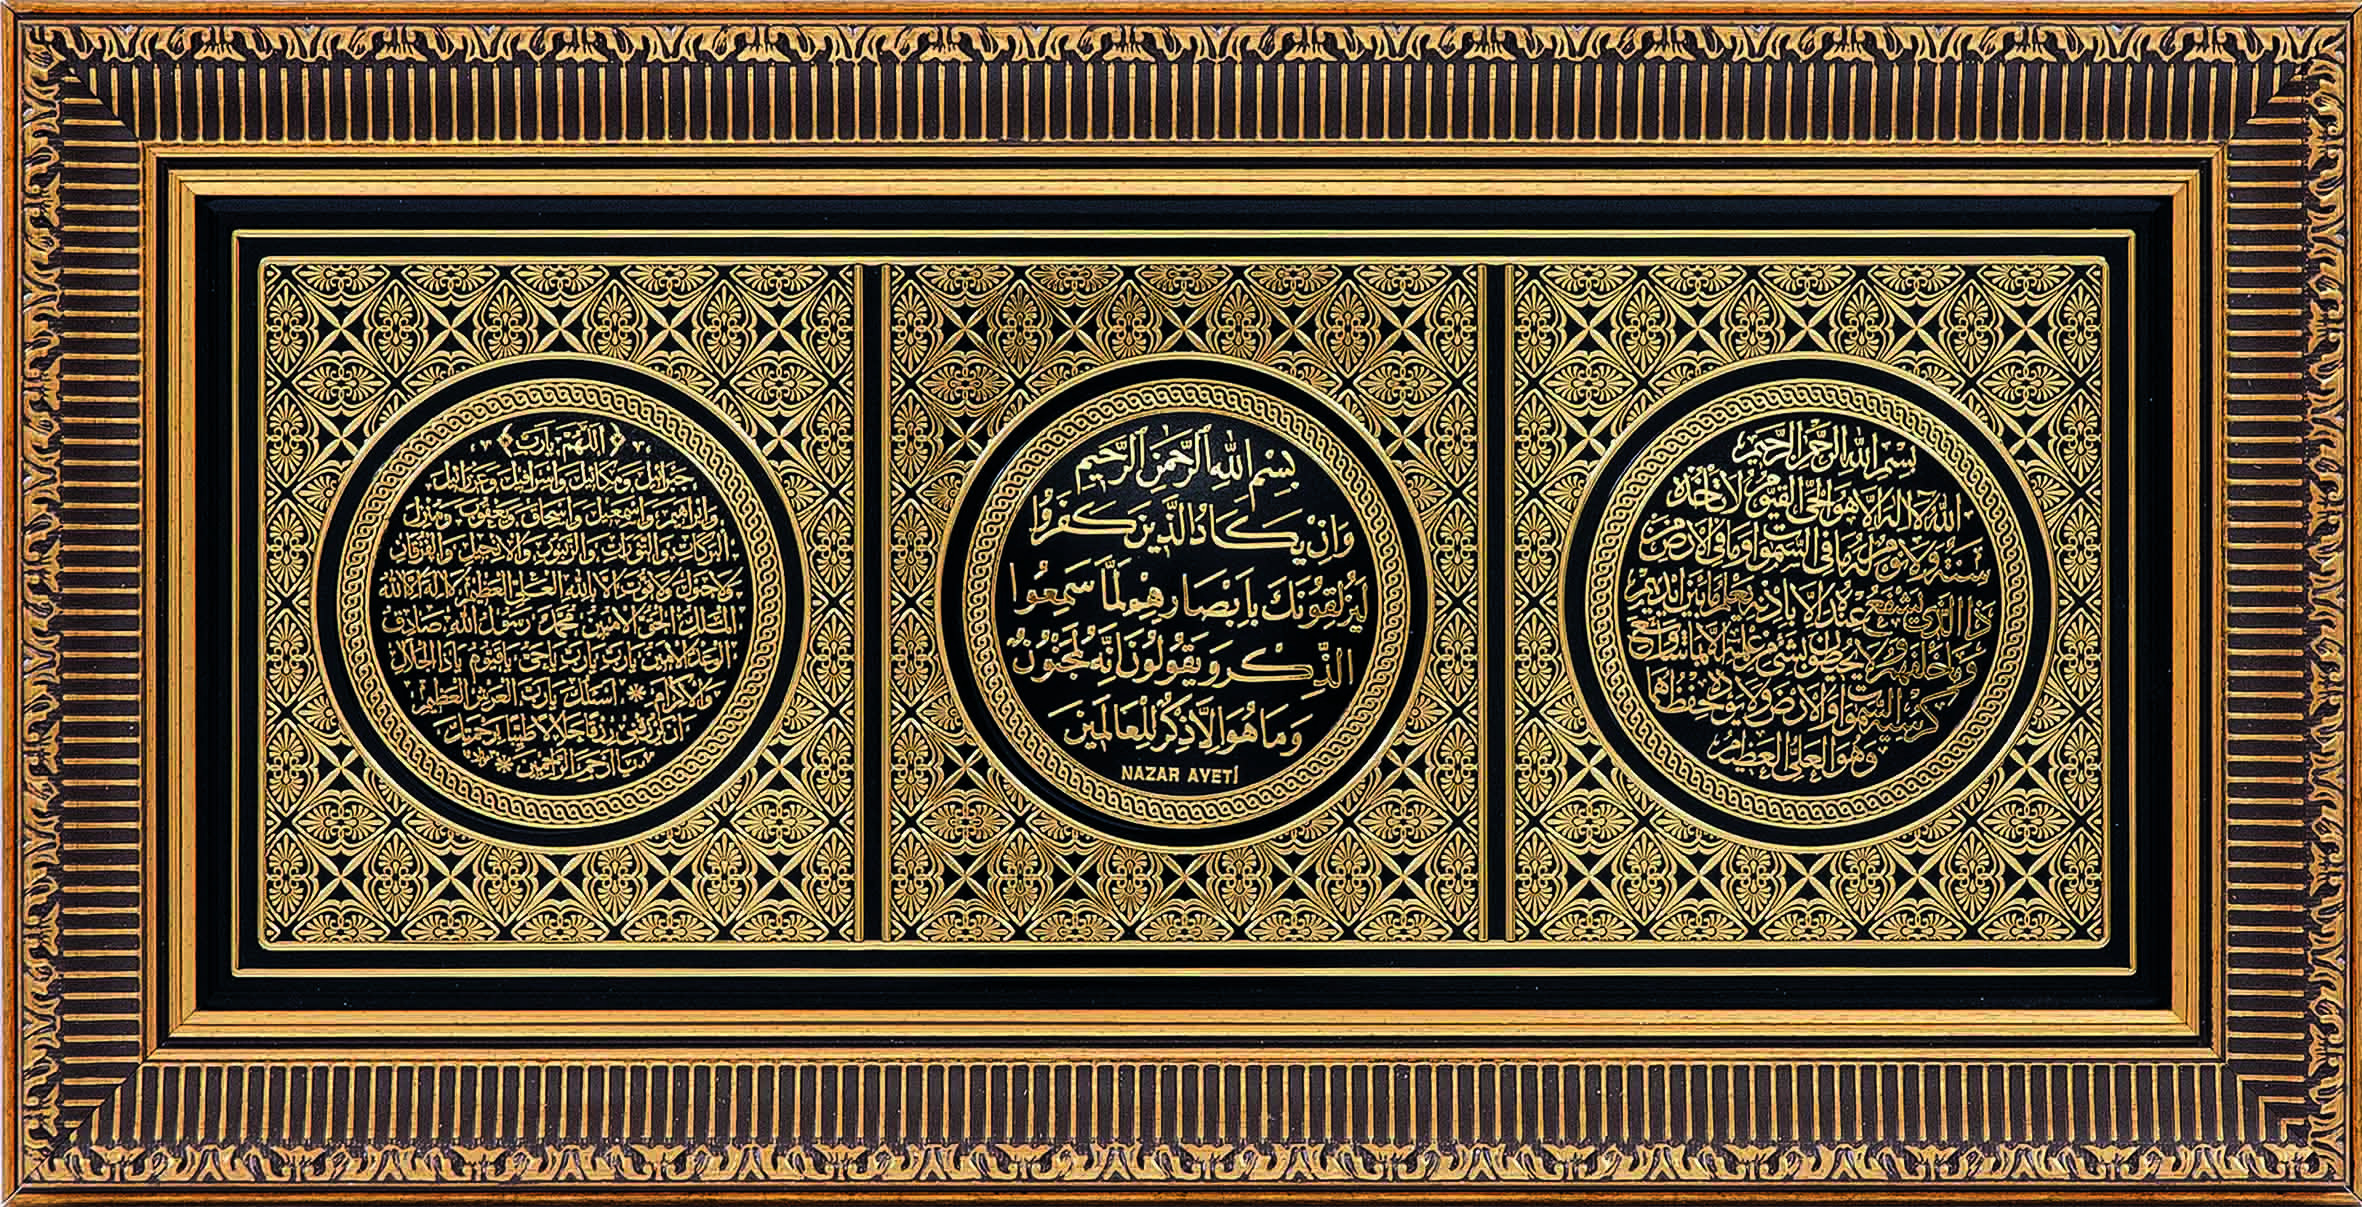 بِسْمِ اللهِ الرَّحْمٰنِ الرَّحِيمِ
اَللهُ لَا اِلٰهَ اِلَّا هُوَ الْحَىُّ الْقَيُّومُ لَا تَأْخُذُهُ
سِنَةٌ وَلَا نَوْمٌ لَهُ مَا فِى السَّمٰوَاتِ وَمَا فِى الْاَرْضِ مَنْ
ذَا الَّذِى يَشْفَعُ عِنْدَهُ اِلَّا بِاِذْنِهِ يَعْلَمُ مَا بَيْنَ اَيْدِيهِمْ
وَمَا خَلْفَهُمْ وَلَا يُحِيطُونَ بِشَىْءٍ مِنْ عِلْمِهِ اِلَّا بِمَا شَاءَ وَسِعَ
كُرْسِيُّهُ السَّمٰوَاتِ وَالْاَرْضَ وَلَا يَؤُدُهُ حِفْظُهُمَا
وَهُوَ الْعَلِىُّ الْعَظِيمُ
بِسْمِ اللهِ الرَّحْمٰنِ الرَّحِيمِ
وَاِنْ يَكَادُ الَّذِينَ كَفَرُوا
لَيُزْلِقُونَكَ بِاَبْصَارِهِمْ لَمَّا سَمِعُوا
الذِّكْرَ وَيَقُولُونَ اِنَّهُ لَمَجْنُونٌ
وَمَا هُوَ اِلَّا ذِكْرٌ لِلْعَالَمِينَ
NAZAR AYETİ
اللهم يارب
جبرائيل وميكائيل واسرافيل وعزرائيل
وابراهيم واسمعيل واسحاق ويعقوب ومنزل
البركات والتورات والزبور والانجيل والفرقان
ولا حول ولا قوت الا بالله العلى العظيم لا اله الا الله
الملك الحق المبين محمد رسول الله صادق
الوعد الامين يارب يارب ياحى ياقيوم ياذا الجلال
والاكرام * اسئلك يارب العرش العظيم
ان ترزقنى رزقا حلالا طيبا برحمتك
يا ارحم الراحمين *